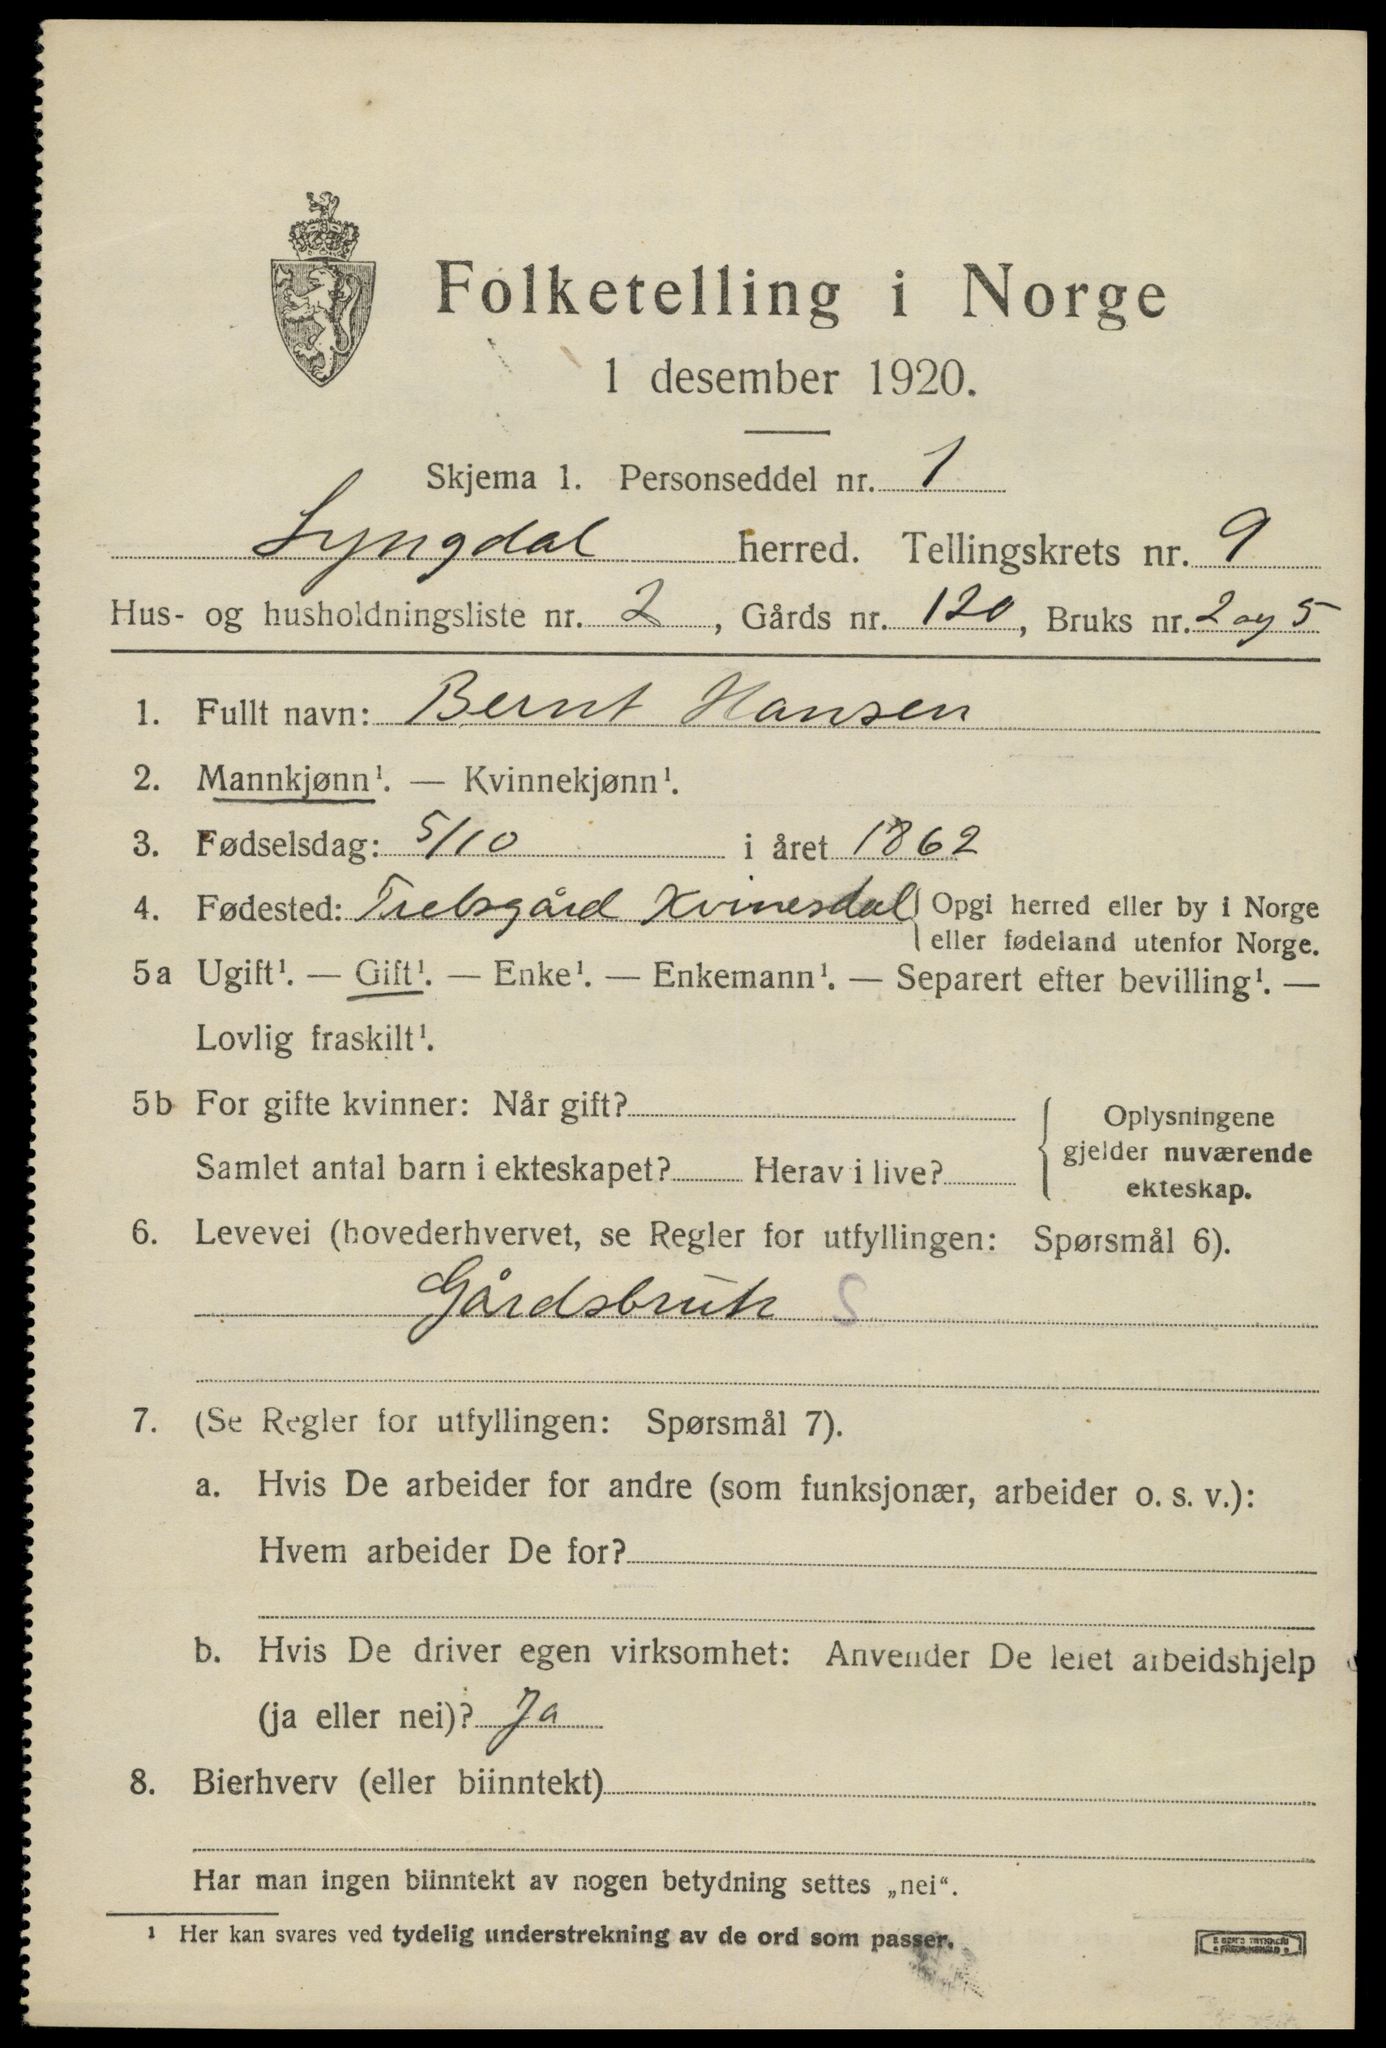 Folketelling i Norge
1 desember 1920.
Skjema 1. Personseddel nr. 1
Lyngdal herred. Tellingskrets nr. 9
Hus- og husholdningsliste nr. 2, Gårds nr. 120, Bruks nr. 2 og 5
1. Fullt navn: Bernt Hansen
2. Mannkjønn¹. — Kvinnekjønn¹.
3. Fødselsdag: 5/10 i året 1862
4. Fødested: Kvinesdal { Opgi herred eller by i Norge
eller fødeland utenfor Norge.
5a Ugift¹. — Gift¹. — Enke¹. — Enkemann¹. — Separert efter bevilling¹. —
Lovlig fraskilt¹.
5b For gifte kvinner: Når gift?
Samlet antal barn i ekteskapet? Herav i live?
{ Oplysningene
gjelder nuværende
ekteskap.
6. Levevei (hovederhvervet, se Regler for utfyllingen: Spørsmål 6).
Gårdsbruk S
7. (Se Regler for utfyllingen: Spørsmål 7).
a. Hvis De arbeider for andre (som funksjonær, arbeider o. s. v.):
Hvem arbeider De for?
b. Hvis De driver egen virksomhet: Anvender De leiet arbeidshjelp
(ja eller nei)? Ja
8. Bierhverv (eller biinntekt)
Har man ingen biinntekt av nogen betydning settes „nei“.
¹ Her kan svares ved tydelig understrekning av de ord som passer.